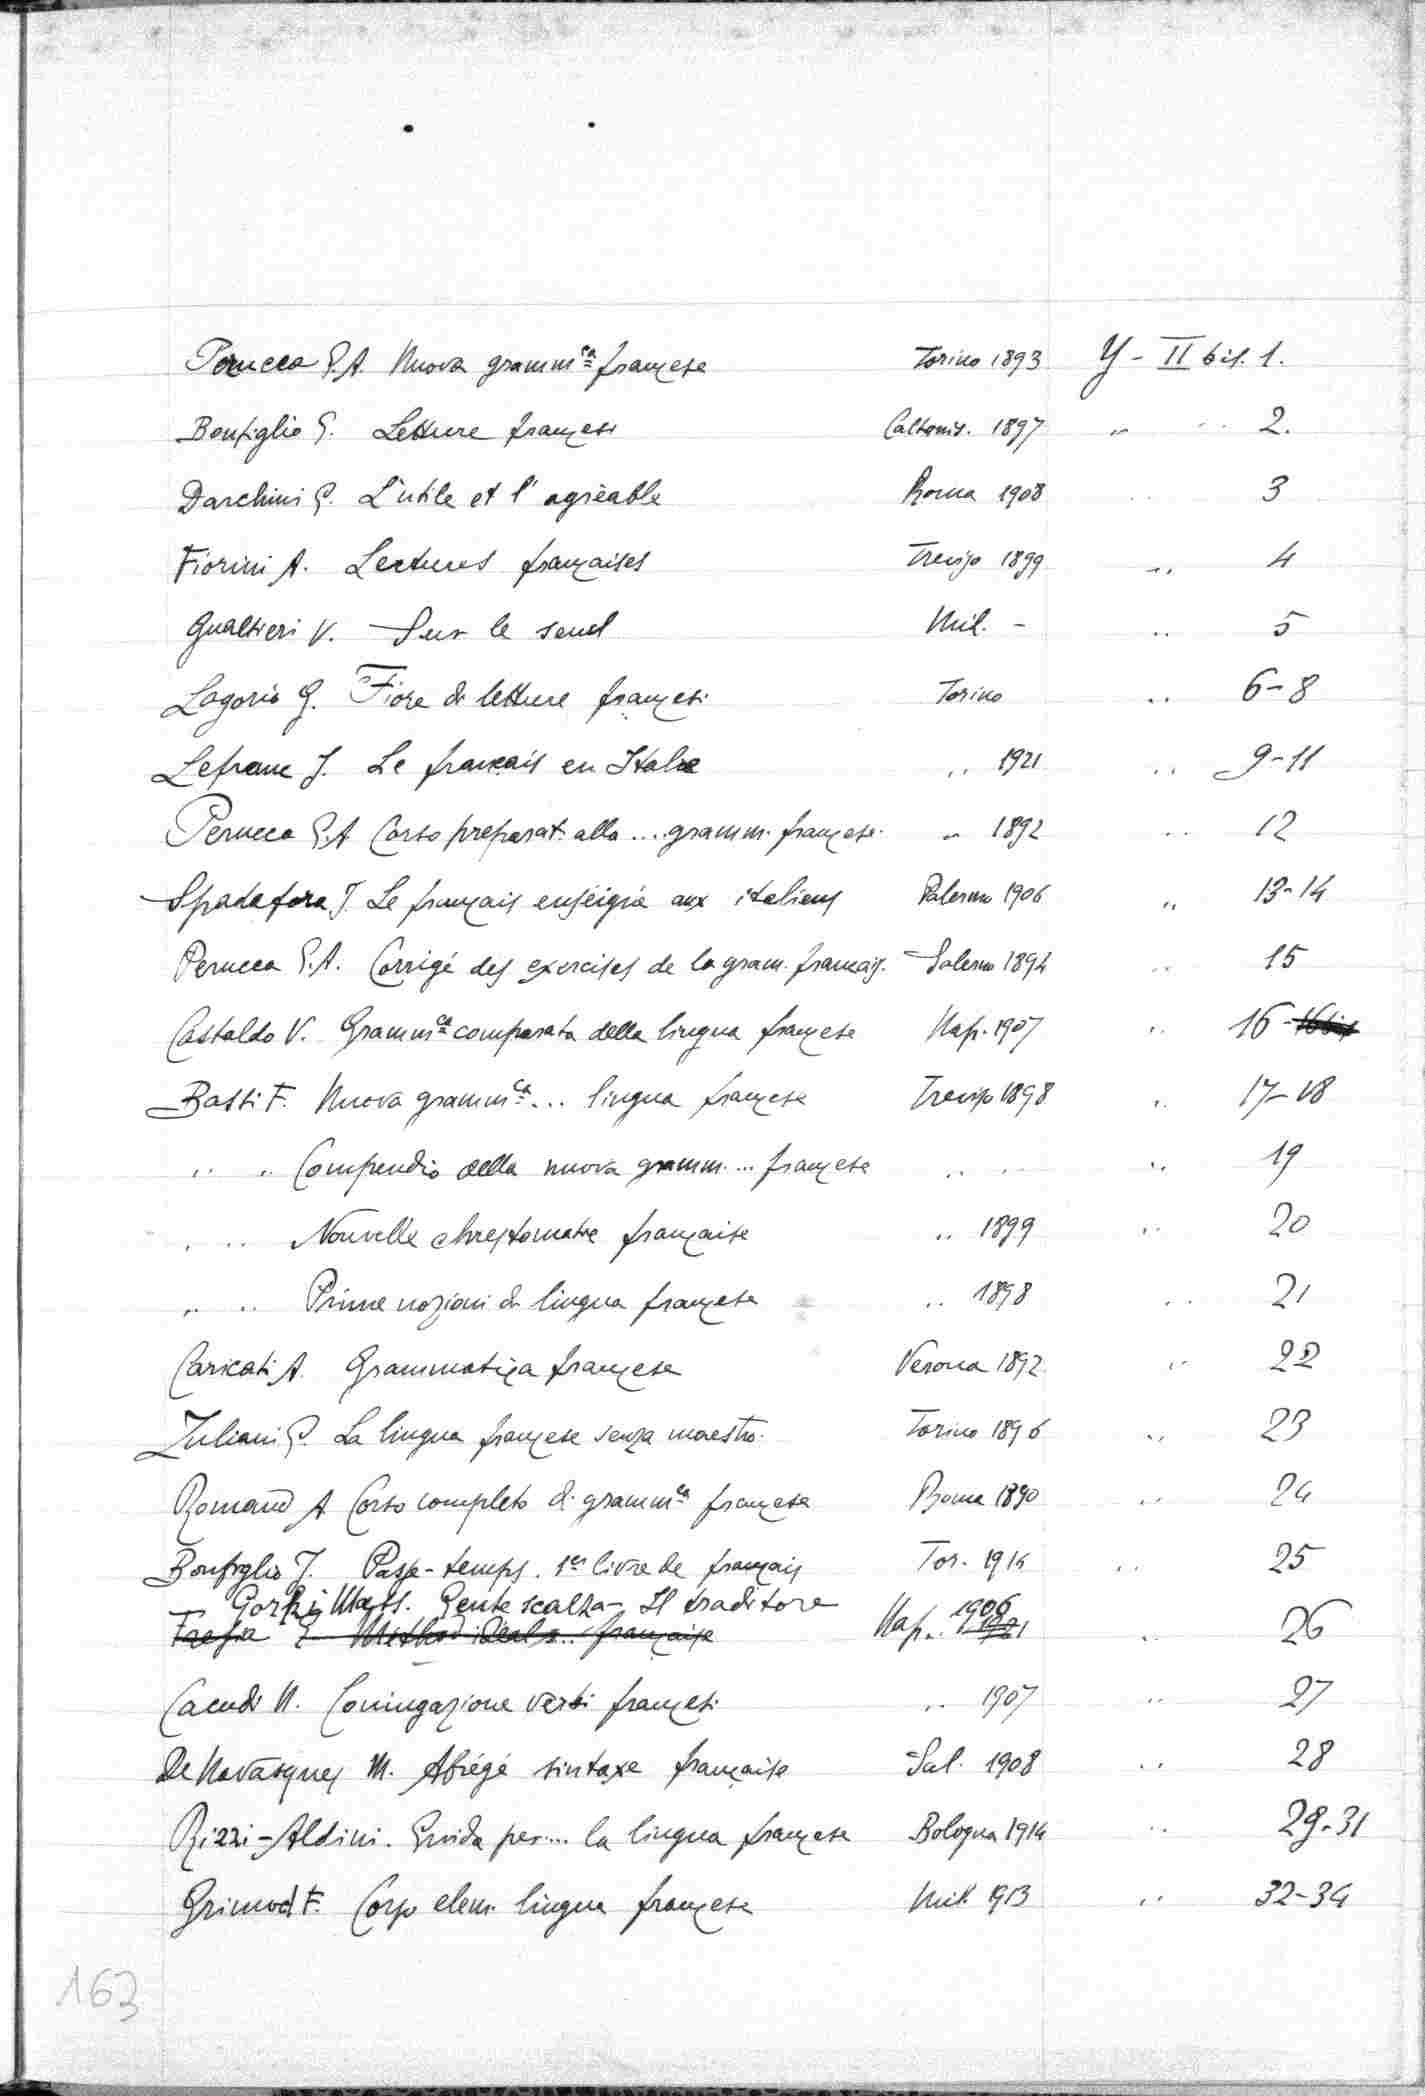 Perucca G.A. Nuova gramm.ca francese Torino 1893 Y - II bis. 1.
Bonfiglio G. Letture francesi Caltanis. 1897 " " 2.
Darchini G. L'utile et l'agréable Roma 1908 " 3
Fiorini A. Lectures françaises Treviso 1899 " 4
Gualtieri V. Sur le seuil Mil. - " 5
Lagorio G. Fiore di letture francesi Torino " 6-8
Lefranc J. Le français en Italie " 1921 " 9-11
Perucca G.A Corso preparat. alla .... gramm. francese. " 1892 " 12
Spadafora J. Le français enseigné aux italiens Palermo 1906 " 13-14
Perucca G.A. Corrigé des exercises de la gram. français. Salerno 1894 " 15
Castaldo V. Gramm.ca comparata della lingua francese Nap. 1907 " 16-16bis
Bassi F. Nuova gramm.ca ... lingua francese Treviso 1898 " 17-18
" " Compendio della nuova gramm. ... francese " " " 19
" " Nouvelle chrestomatie française " 1899 " 20
" " Prime nozioni di lingua francese " 1898 " 21
Caricati A. Grammatica francese Verona 1892 " 22
Zuliani G. La lingua francese senza maestro. Torino 1896 " 23
Romand A Corso completo di gramm.ca francese Roma 1890 " 24
Bonfiglio J. Passe-temps. 1er livre de français Tor. 1914 " 25
Gorki Mass. Gente scalza - Il traditore Nap. 1906 " 26
française
Cacudi N. Coniugazione verbi francesi " 1907 " 27
De Navasques M. Abrégé sintaxe française Sal. 1908 " 28
Rizzi-Aldini. Guida per.... la lingua francese Bologna 1914 " 29-31
Grimod F. Corso elem. lingua francese Mil. 1913 " 32-34
163